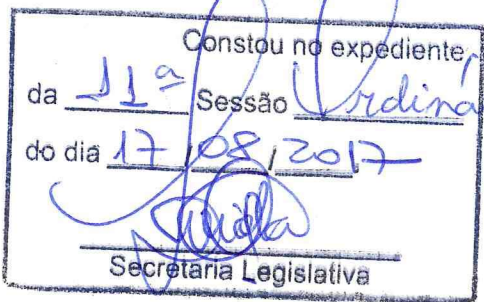 Constou no expediente
da 11ª Sessão Ordiná
do dia 17/08/2017
Secretaria Legislativa